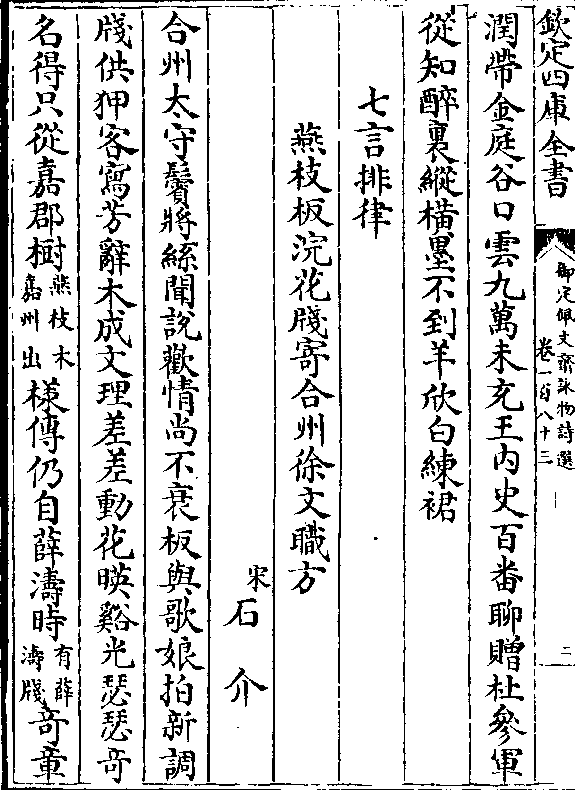 欽定四庫全書
御定佩文齋詠物詩選
卷一百八十三
二
潤帶金庭谷口雲九萬未充王内史百畨聊贈杜參軍
從知醉裏縱橫墨不到羊欣白練裙
七言排律
燕枝板浣花牋寄合州徐文職方
宋 石介
合州太守鬢將絲聞說歡情尚不衰板與歌娘拍新調
牋供狎客寫芳辭木成文理差差動花暎谿光瑟瑟竒
名得只從嘉郡樹燕枝木嘉州出様傳仍自薛濤時有薛濤牋竒章